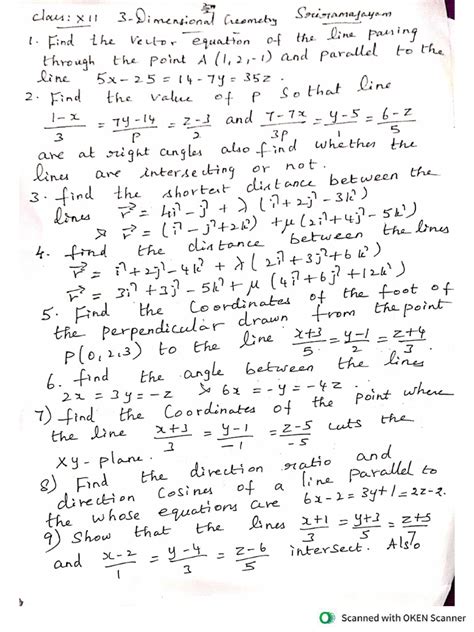 Class: XII 3-Dimensional Geometry Sairamajayam
1. Find the vector equation of the line passing
through the point A (1, 2, -1) and parallel to the
line 5x - 25 = 14 - 7y = 35z.
2. Find the value of P so that line
(1-x)/3 = (7y-14)/P = (z-3)/2 and (7-7x)/3p = (y-5)/1 = (6-z)/5
are at right angles also find whether the
lines are intersecting or not.
3. find the shortest distance between the
lines r = 4i - j + λ (i + 2j - 3k)
& r = (i - j + 2k) + μ (2i + 4j - 5k)
4. find the distance between the lines
r = i + 2j - 4k + λ (2i + 3j + 6k)
r = 3i + 3j - 5k + μ (4i + 6j + 12k)
5. Find the Coordinates of the foot of
the perpendicular drawn from the point
P(0, 2, 3) to the line (x+3)/5 = (y-1)/2 = (z+4)/3
6. find the angle between the lines
2x = 3y = -z & 6x = -y = -4z.
7) find the Coordinates of the point where
the line (x+3)/3 = (y-1)/-1 = (z-5)/-5 cuts the
XY-plane.
8) Find the direction ratio and
direction Cosines of a line parallel to
the whose equations are 6x - 2 = 3y + 1 = 2z - 2.
9) Show that the lines (x+1)/3 = (y+3)/5 = (z+5)/7
and (x-2)/1 = (y-4)/3 = (z-6)/5 intersect. Also
Scanned with OKEN Scanner